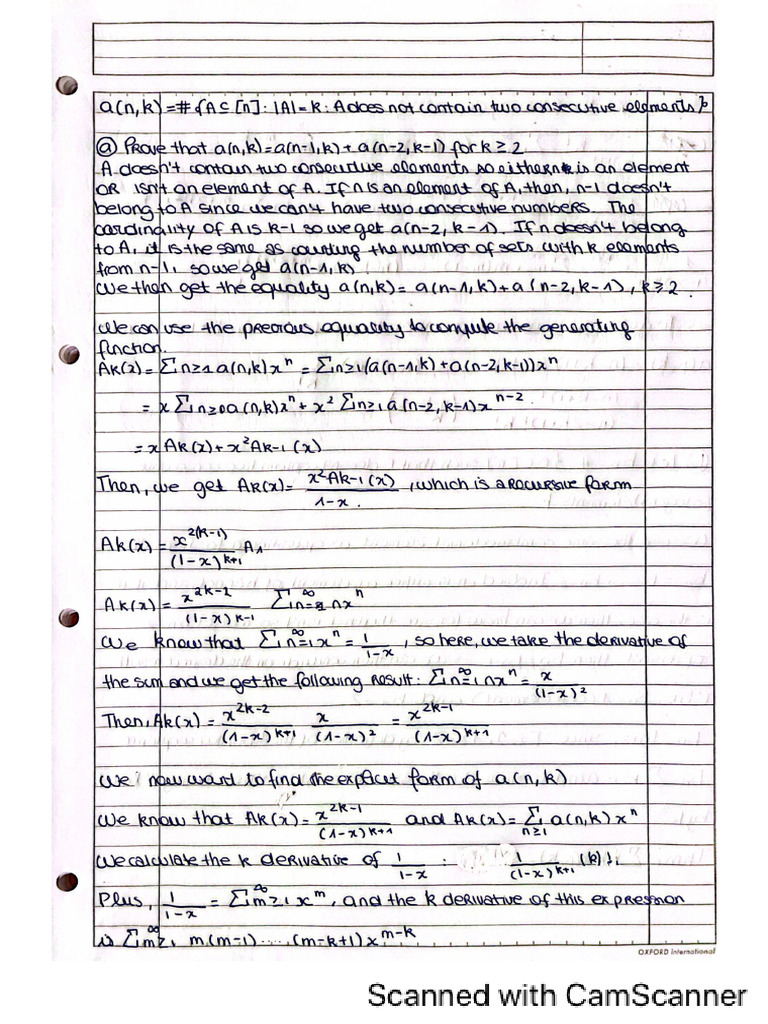 a(n,k)=#{A⊆[n]: |A|=k: A does not contain two consecutive elements}
ⓐ Prove that a(n,k)=a(n-1,k)+a(n-2,k-1) for k≥2
A doesn't contain two consecutive elements so either n is an element
OR isn't an element of A. If n is an element of A, then, n-1 doesn't
belong to A since we can't have two consecutive numbers. The
cardinality of A is k-1 so we get a(n-2, k-1). If n doesn't belong
to A, it is the same as counting the number of sets with k elements
from n-1, so we get a(n-1,k)
We then get the equality a(n,k)= a(n-1,k)+a(n-2,k-1), k≥2.
We can use the precious equality to compute the generating
function.
Ak(x)= Σn≥1 a(n,k)x^n = Σn≥1(a(n-1,k)+a(n-2,k-1))x^n
= x Σn≥0 a(n,k)x^n + x² Σn≥1 a(n-2,k-1)x^{n-2}
= xAk(x)+x²Ak-1(x)
Then, we get Ak(x)= x²Ak-1(x)/(1-x), which is a recursive form
Ak(x) = x^{2(k-1)}/(1-x)^{k+1} A1
Ak(x)= x^{2k-2}/(1-x)^{k-1} Σ∞n= nx^n
We know that Σ∞n=1 x^n = 1/(1-x), so here, we take the derivative of
the sum and we get the following result: Σ∞n=1 nx^n = x/(1-x)²
Then, Ak(x)= x^{2k-2}/(1-x)^{k+1} x/(1-x)² = x^{2k-1}/(1-x)^{k+1}
We now want to find the explicit form of a(n,k)
We know that Ak(x)= x^{2k-1}/(1-x)^{k+1} and Ak(x)= Σn≥1 a(n,k)x^n
We calculate the k derivative of 1/(1-x) : 1/(1-x)^{k+1} (k)!,
Plus, 1/(1-x) = Σ∞m≥1 x^m, and the k derivative of this expression
is Σ∞m≥1 m(m-1)....(m-k+1)x^{m-k}
OXFORD International
Scanned with CamScanner